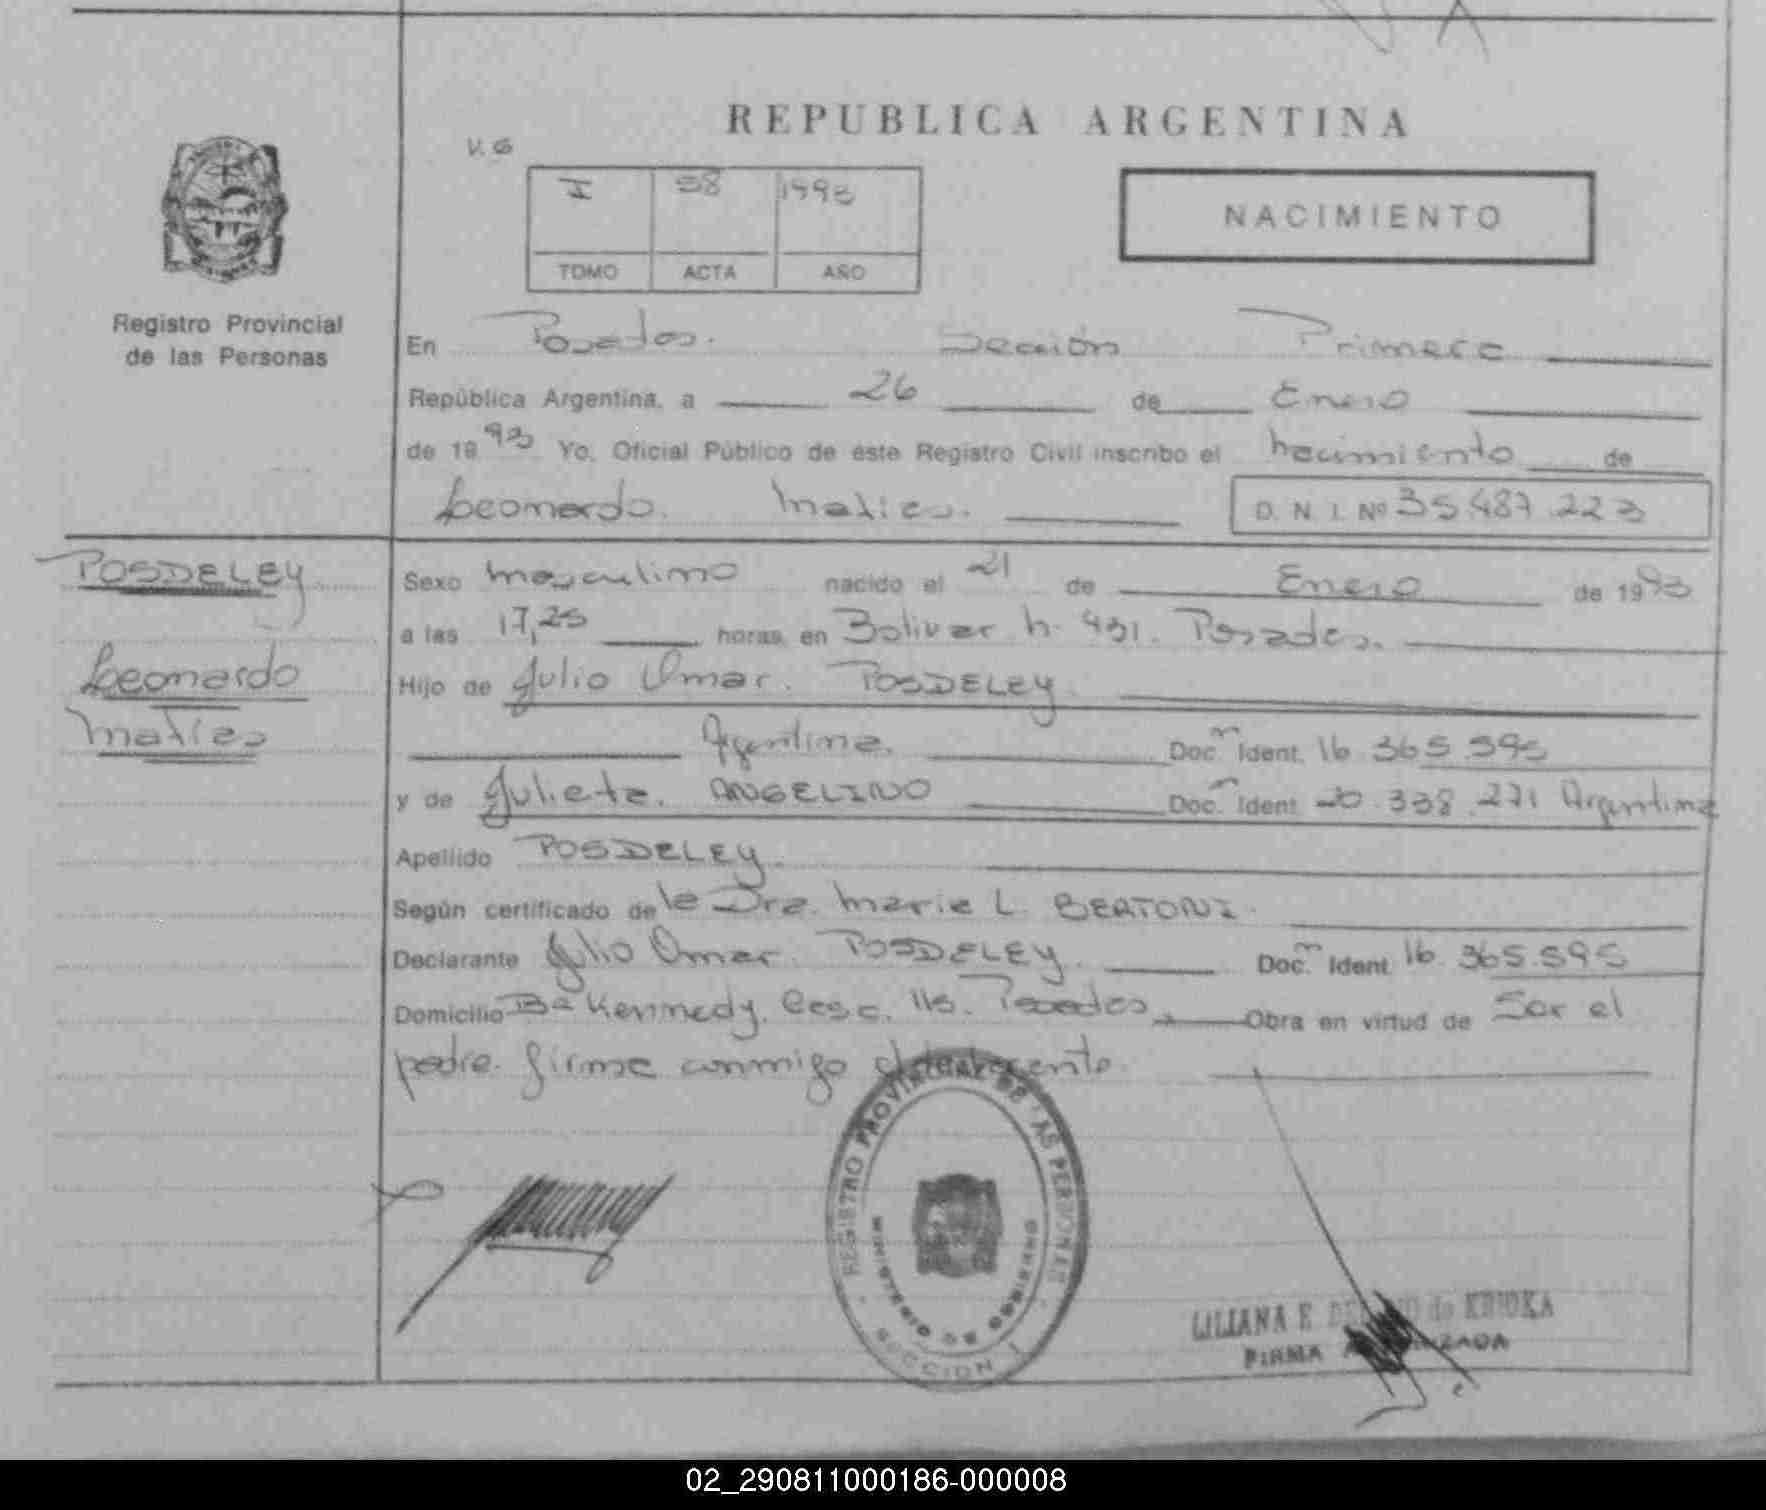 REPUBLICA ARGENTINA
V. G
I 58 1993
TOMO ACTA AÑO
NACIMIENTO
Registro Provincial
de las Personas
En Posadas. Sección Primera
República Argentina, a 26 de Enero
de 19 93 Yo, Oficial Público de este Registro Civil inscribo el nacimiento de
Leonardo. Matías. D. N. I. Nº 35.487.223
POSDELEY
Leonardo
Matías
Sexo masculino nacido el 21 de Enero de 1993
a las 17,25 horas, en Bolivar n. 431. Posadas.
Hijo de Julio Omar. POSDELEY
Argentina. Doc. Ident. 16.365.595
y de Julieta. ANGELINO Doc. Ident. 20.338.271 Argentina
Apellido POSDELEY.
Según certificado de la Dra. Maria L. BERTONI.
Declarante Julio Omar. POSDELEY. Doc. Ident. 16.365.595
Domicilio Bº Kennedy. Casa. 115. Posadas. Obra en virtud de Ser el
padre. firma conmigo
REGISTRO PROVINCIAL DE LAS PERSONAS
MINISTERIO DE GOBIERNO
SECCION I
LILIANA E de
FIRMA AUTORIZADA
02_290811000186-000008